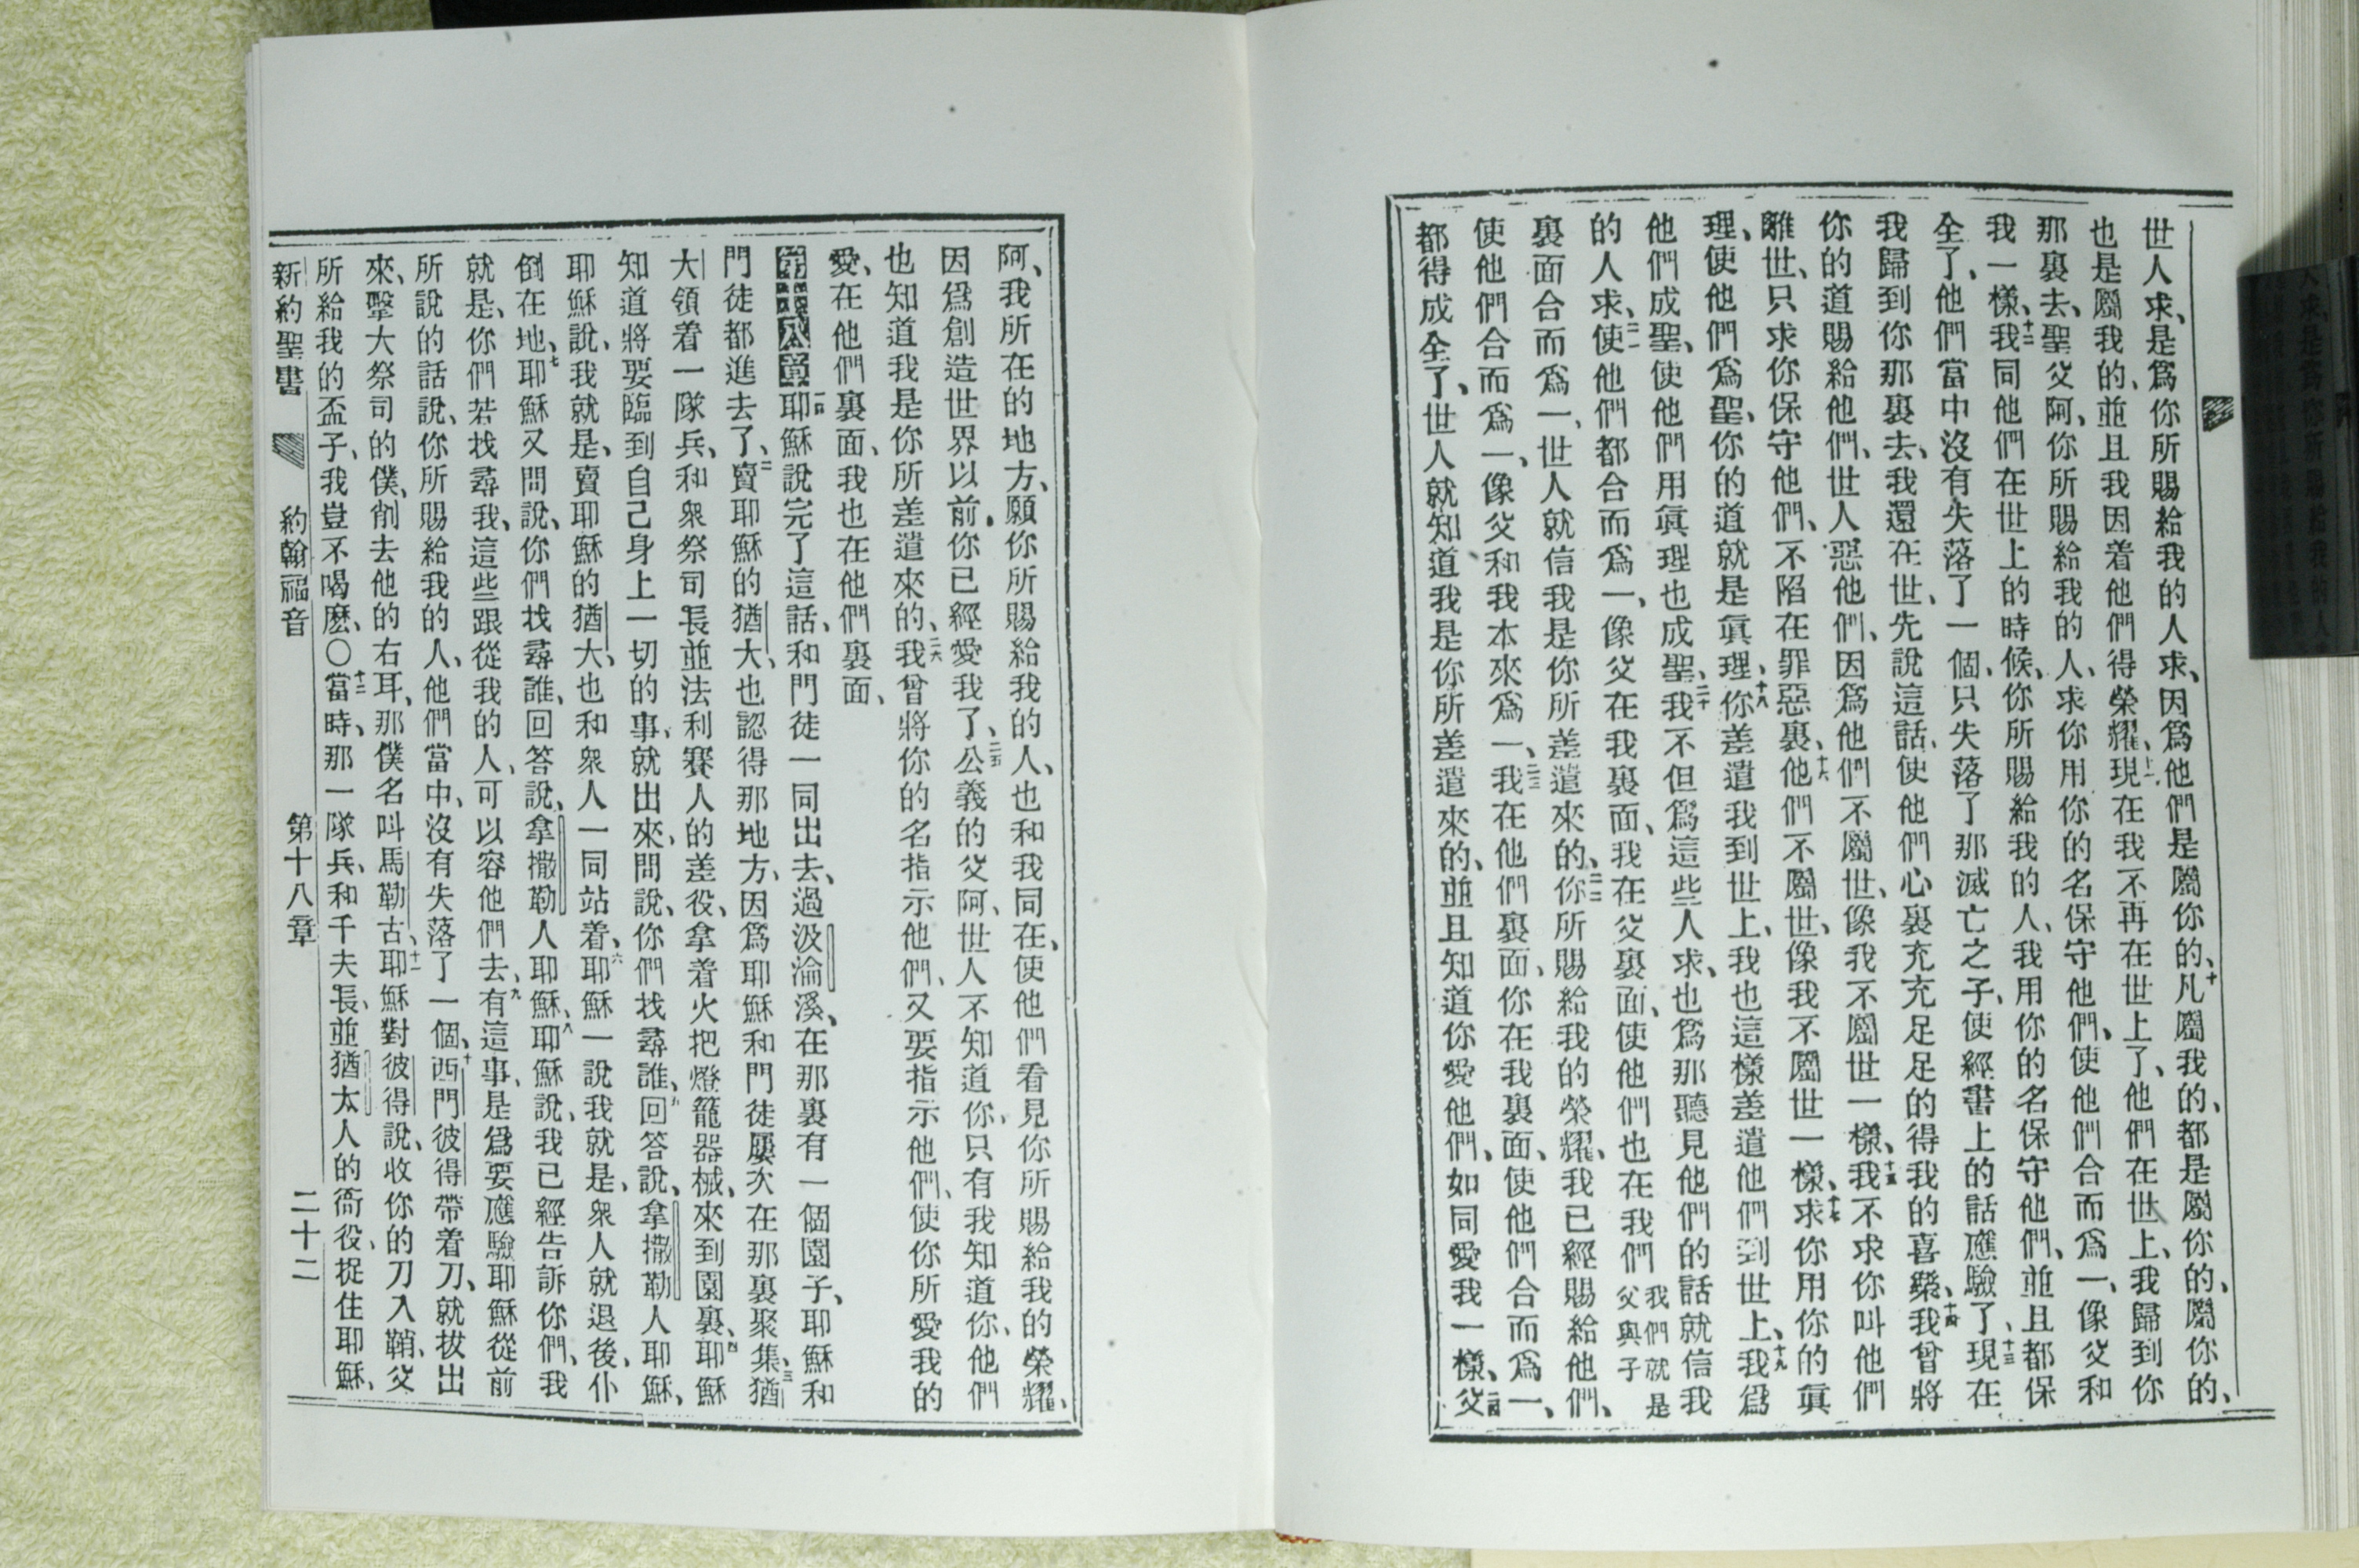 世人求、是爲你所賜給我的人求、因爲他們是屬你的、十凡屬我的、都是屬你的、屬你的、
也是屬我的、並且我因着他們得榮耀、十一現在我不再在世上了、他們在世上、我歸到你
那裏去、聖父阿、你所賜給我的人、求你用你的名保守他們、使他們合而爲一、像父和
我一樣、十二我同他們在世上的時候、你所賜給我的人、我用你的名保守他們、並且都保
全了、他們當中沒有失落了一個、只失落了那滅亡之子、使經書上的話應驗了、十三現在
我歸到你那裏去、我還在世、先說這話、使他們心裏充充足足的得我的喜樂、十四我曾將
你的道賜給他們、世人惡他們、因爲他們不屬世、像我不屬世一樣、十五我不求你叫他們
離世、只求你保守他們、不陷在罪惡裏、十六他們不屬世、像我不屬世一樣、十七求你用你的眞
理、使他們爲聖、你的道就是眞理、十八你差遣我到世上、我也這樣差遣他們到世上、十九我爲
他們成聖、使他們用眞理也成聖、二十我不但爲這些人求、也爲那聽見他們的話就信我
的人求、二一使他們都合而爲一、像父在我裏面、我在父裏面、使他們也在我們我們就是父與子
裏面合而爲一、世人就信我是你所差遣來的、二二你所賜給我的榮耀、我已經賜給他們、
使他們合而爲一、像父和我本來爲一、二三我在他們裏面、你在我裏面、使他們合而爲一、
都得成全了、世人就知道我是你所差遣來的、並且知道你愛他們、如同愛我一樣、二四父
阿、我所在的地方、願你所賜給我的人、也和我同在、使他們看見你所賜給我的榮耀、
因爲創造世界以前、你已經愛我了、二五公義的父阿、世人不知道你、只有我知道你、他們
也知道我是你所差遣來的、二六我曾將你的名指示他們、又要指示他們、使你所愛我的
愛、在他們裏面、我也在他們裏面、
第十八章 一耶穌說完了這話、和門徒一同出去、過汲淪溪、在那裏有一個園子、耶穌和
門徒都進去了、二賣耶穌的猶大、也認得那地方、因爲耶穌和門徒屢次在那裏聚集、三猶
大領着一隊兵、和衆祭司長並法利賽人的差役、拿着火把燈籠器械、來到園裏、四耶穌
知道將要臨到自己身上一切的事、就出來、問說、你們找尋誰、五回答說、拿撒勒人耶穌、
耶穌說、我就是、賣耶穌的猶大、也和衆人一同站着、六耶穌一說我就是、衆人就退後、仆
倒在地、七耶穌又問說、你們找尋誰、回答說、拿撒勒人耶穌、八耶穌說、我已經告訴你們、我
就是、你們若找尋我、這些跟從我的人、可以容他們去、九有這事、是爲要應驗耶穌從前
所說的話說、你所賜給我的人、他們當中、沒有失落了一個、十西門彼得帶着刀、就拔出
來、擊大祭司的僕、削去他的右耳、那僕名叫馬勒古、十一耶穌對彼得說、收你的刀入鞘、父
所給我的盃子、我豈不喝麽、〇十二當時、那一隊兵、和千夫長、並猶太人的衙役、捉住耶穌、
新約聖書 約翰福音 第十八章 二十二